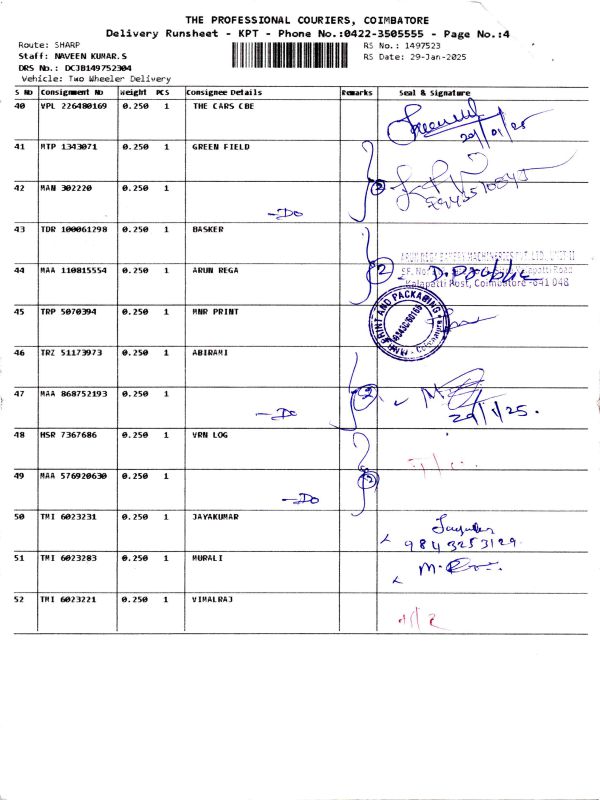 THE PROFESSIONAL COURIERS, COIMBATORE
Delivery Runsheet - KPT - Phone No.:0422-3505555 - Page No.:4
Route: SHARP
RS No.: 1497523
Staff: NAVEEN KUMAR.S
RS Date: 29-Jan-2025
DRS No.: DCJB149752304
Vehicle: Two Wheeler Delivery
S NO Consignment No Weight PCS Consignee Details Remarks Seal & Signature
40 VPL 226480169 0.250 1 THE CARS CBE
29/01/25
41 MTP 1343071 0.250 1 GREEN FIELD
42 MAN 302220 0.250 1
2
-Do
43 TDR 100061298 0.250 1 BASKER
44 MAA 110815554 0.250 1 ARUN REGA
2
Kalapatti Post, Coimbatore -641 048
45 TRP 5070394 0.250 1 MNR PRINT
PRINT AND PACKAGING
46 TRZ 51173973 0.250 1 ABIRAMI
47 MAA 868752193 0.250 1
2
-Do
29/1/25.
48 HSR 7367686 0.250 1 VRN LOG
49 MAA 576920630 0.250 1
2
-Do
50 TMI 6023231 0.250 1 JAYAKUMAR
9843253129
51 TMI 6023283 0.250 1 MURALI
52 TMI 6023221 0.250 1 VIMALRAJ